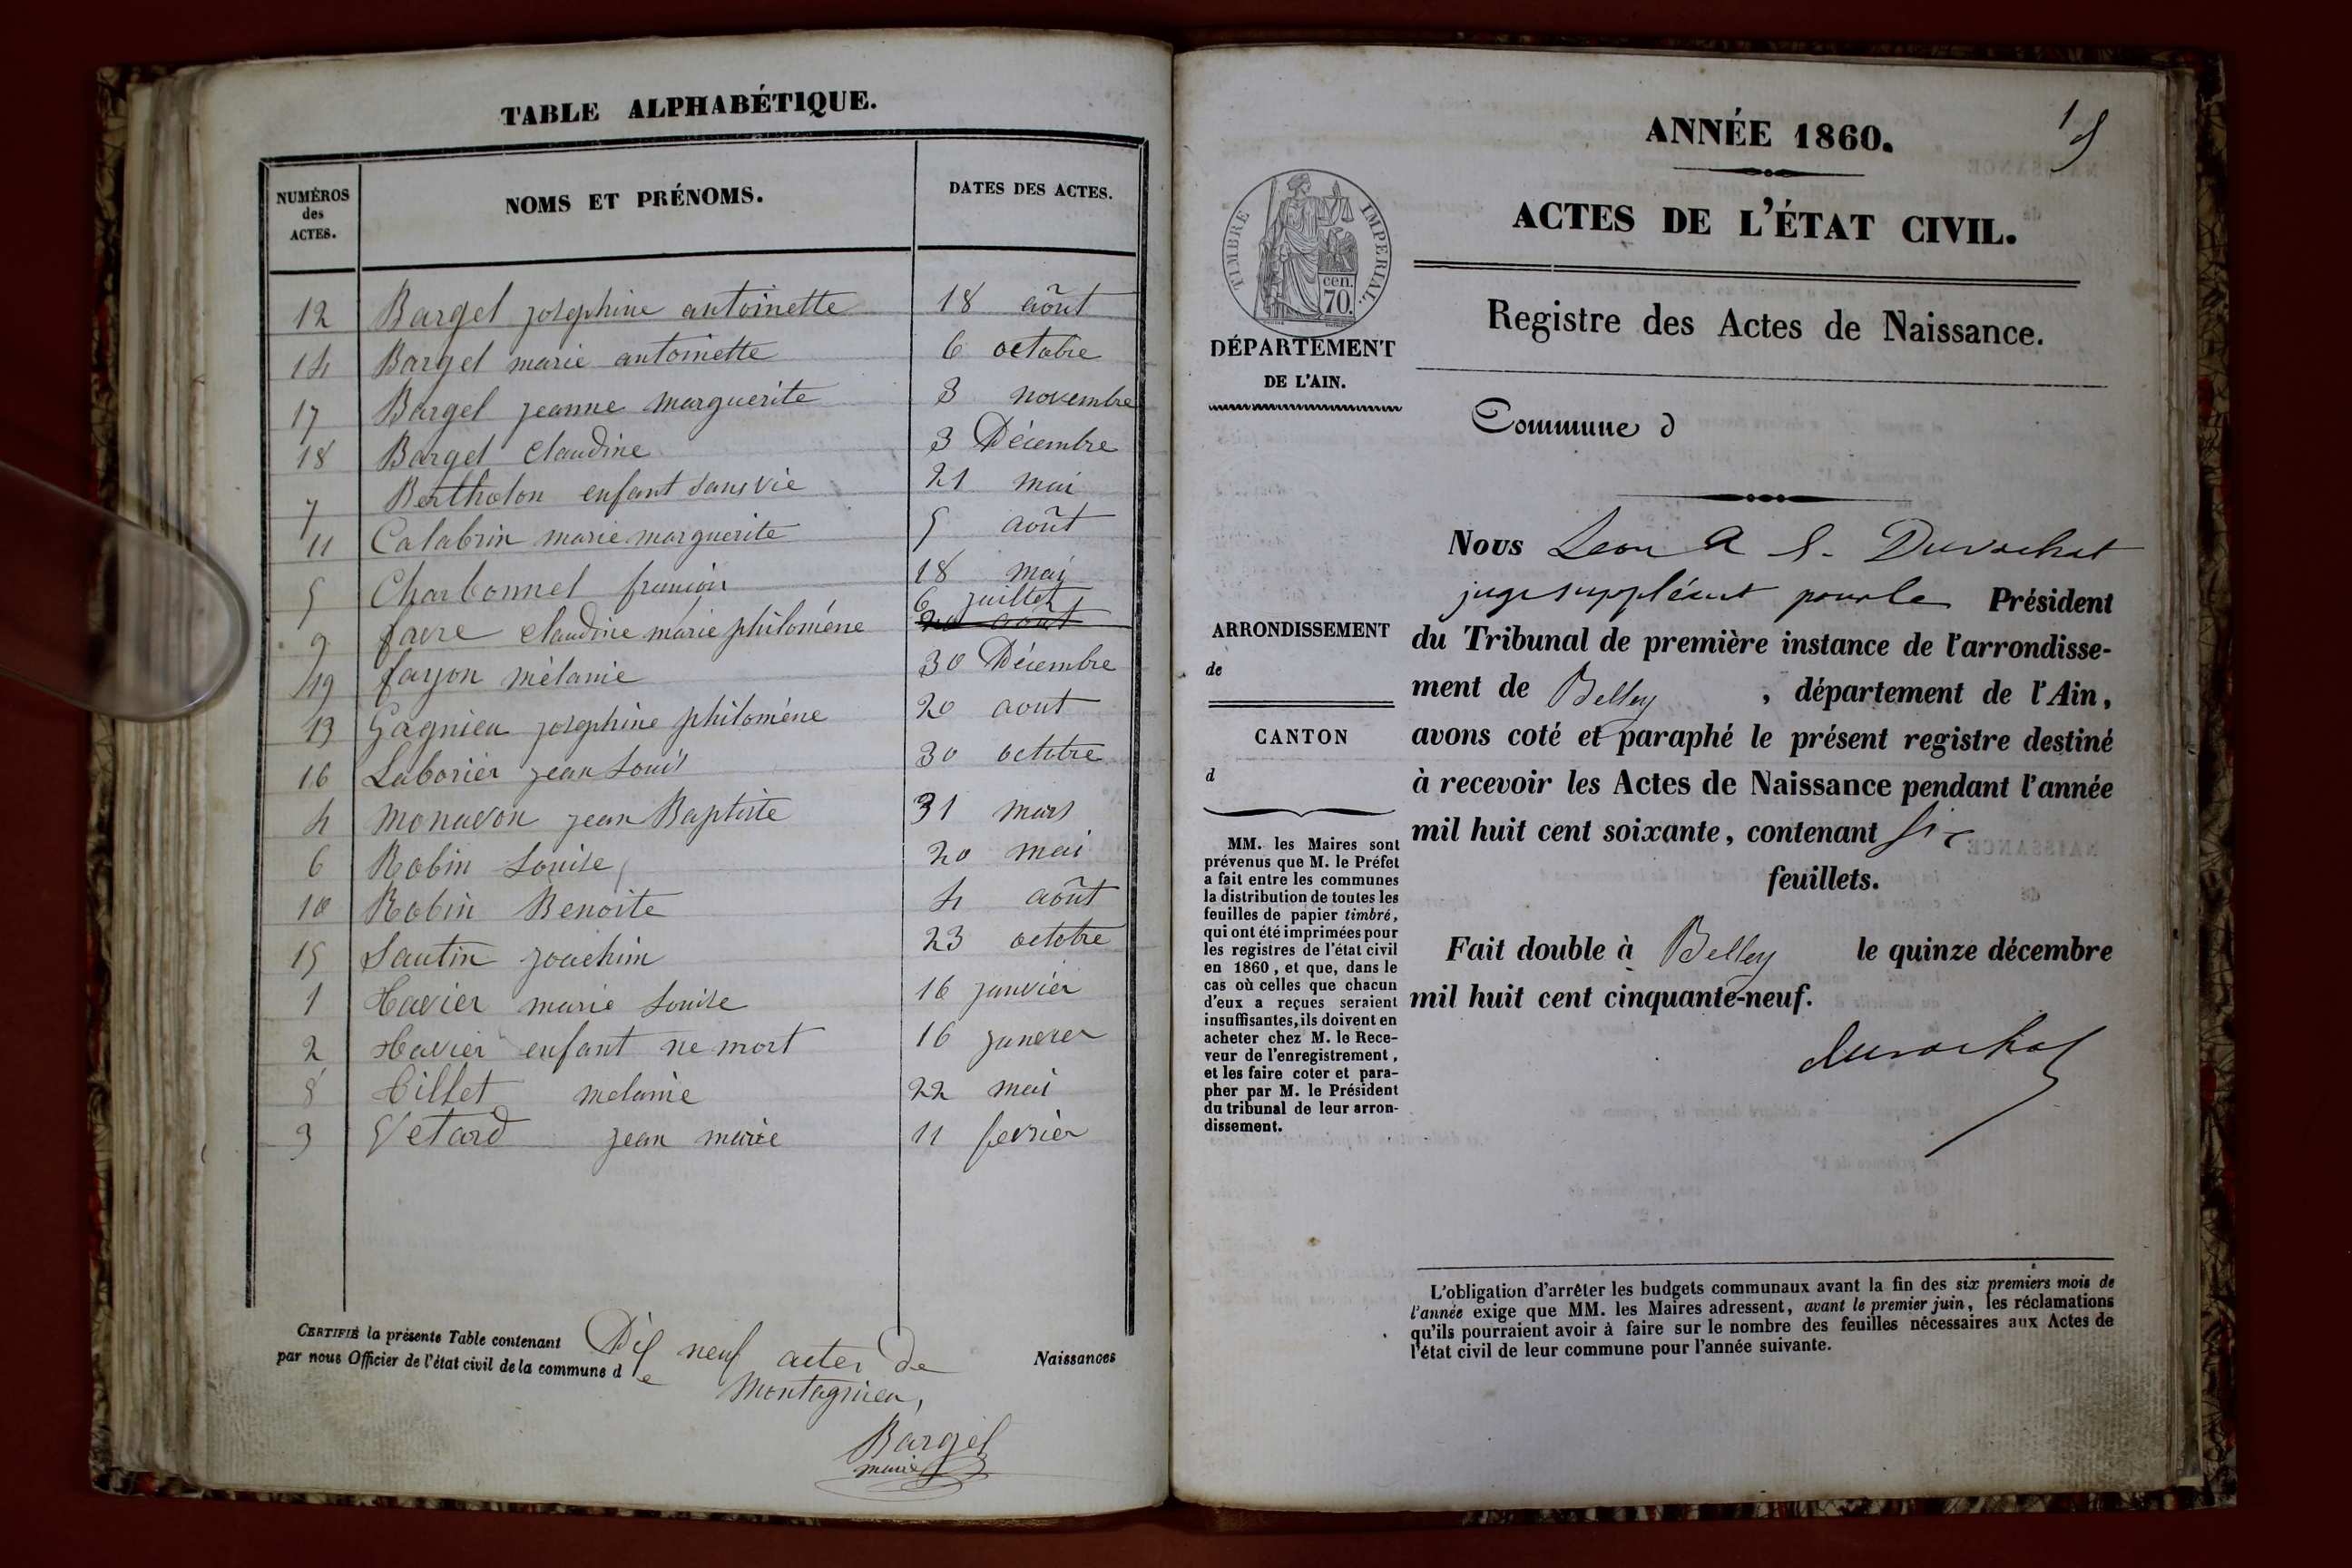 TABLE ALPHABÉTIQUE.
NUMÉROS des ACTES. NOMS ET PRÉNOMS. DATES DES ACTES.
12 Bargel josephine antoinette 18 août
14 Bargel marie antoinette 6 octobre
17 Bargel jeanne marguerite 3 novembre
18 Bargel Claudine 3 Décembre
7 Bertholon enfant sans vie 21 mai
11 Calabrin marie marguerite 5 août
5 Charbonnel francois 18 mai
9 favre claudine marie philoméne 6 juillet
20 aout
19 fayon mélanie 30 Décembre
13 Gagnieu josephine philoméne 20 aout
16 Laborier jean Louis 30 octobre
4 monavon jean Baptiste 31 mars
6 Robin Louise 20 mai
10 Robin Benoite 4 août
15 Sautin joachim 23 octobre
1 Xavier marie Louise 16 janvier
2 Xavier enfant ne mort 16 janvier
8 Tillet melanie 22 mai
3 Vetard jean marie 11 fevrier
CERTIFIÉ la présente Table contenant Dix neuf actes de Naissances
par nous Officier de l'état civil de la commune de Montagnieu,
Bargel
maire
ANNÉE 1860.
ACTES DE L'ÉTAT CIVIL.
TIMBRE IMPERIAL.
cen.
70.
Registre des Actes de Naissance.
DÉPARTEMENT
DE L'AIN.
Commune d
ARRONDISSEMENT
de
CANTON
d
MM. les Maires sont
prévenus que M. le Préfet
a fait entre les communes
la distribution de toutes les
feuilles de papier timbré,
qui ont été imprimées pour
les registres de l'état civil
en 1860, et que, dans le
cas où celles que chacun
d'eux a reçues seraient
insuffisantes, ils doivent en
acheter chez M. le Rece-
veur de l'enregistrement,
et les faire coter et para-
pher par M. le Président
du tribunal de leur arron-
dissement.
Nous Leon A S. Duvachat
juge suppléant pour le Président
du Tribunal de première instance de l'arrondisse-
ment de Belley, département de l'Ain,
avons coté et paraphé le présent registre destiné
à recevoir les Actes de Naissance pendant l'année
mil huit cent soixante, contenant six
feuillets.
Fait double à Belley le quinze décembre
mil huit cent cinquante-neuf.
L'obligation d'arrêter les budgets communaux avant la fin des six premiers mois de
l'année exige que MM. les Maires adressent, avant le premier juin, les réclamations
qu'ils pourraient avoir à faire sur le nombre des feuilles nécessaires aux Actes de
l'état civil de leur commune pour l'année suivante.